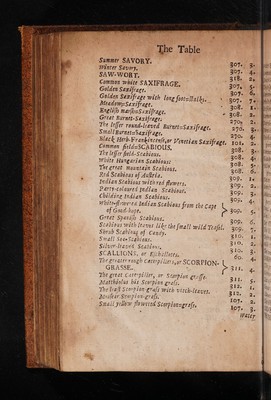 The Table
Summer SAVORY. 307. 3.
Winter Savory. 307. 4.
SAW-WORT. 318. 2.
Common white SAXIFRAGE. 307. 5.
Golden Saxifrage. 307. 6.
Golden Saxifrage with long footstalks. 307. 7.
Meadow Saxifrage. 308. 1.
English Saxifrage. 308.
Great Burnet-Saxifrage. 308. 2.
The lesser round-leaved Burnet-Saxifrage. 270. 2.
Small Burnet-Saxifrage. 270. 3.
Black Herb-Frankincense, or Venetian Saxifrage. 270. 4.
Common field SCABIOUS. 101. 2.
The lesser field-Scabious. 308. 3.
White Hungarian Scabious 308. 4.
The great mountain Scabious. 308. 5.
Red Scabious of Austria. 309. 1.
Indian Scabious with red flowers. 309. 2.
Party-coloured Indian Scabious. 309. 3.
Childing Indian Scabious. 309. 4.
White-flowered Indian Scabious from the Cape
of Good-hope. 309. 5.
Great Spanish Scabious. 309. 6.
Scabious with leaves like the small wild Teasel. 309. 7.
Shrub Scabious of Candy. 310. 1.
Small Sea-Scabious. 310. 2.
Silver-leaved Scabious. 310. 3.
SCALLIONS, or 60. 4.
The greater rough Caterpillars, or SCORPION-
GRASSE. 311.
The great Caterpillar, or Scorpion grasse. 311. 5.
Matthiolus his Scorpion grass. 311. 1.
The least Scorpion grass with vetch-leaves. 311. 2.
Another Scorpion-grass. 107. 2.
Small yellow flowered Scorpion-grass. 107. 3.
Water